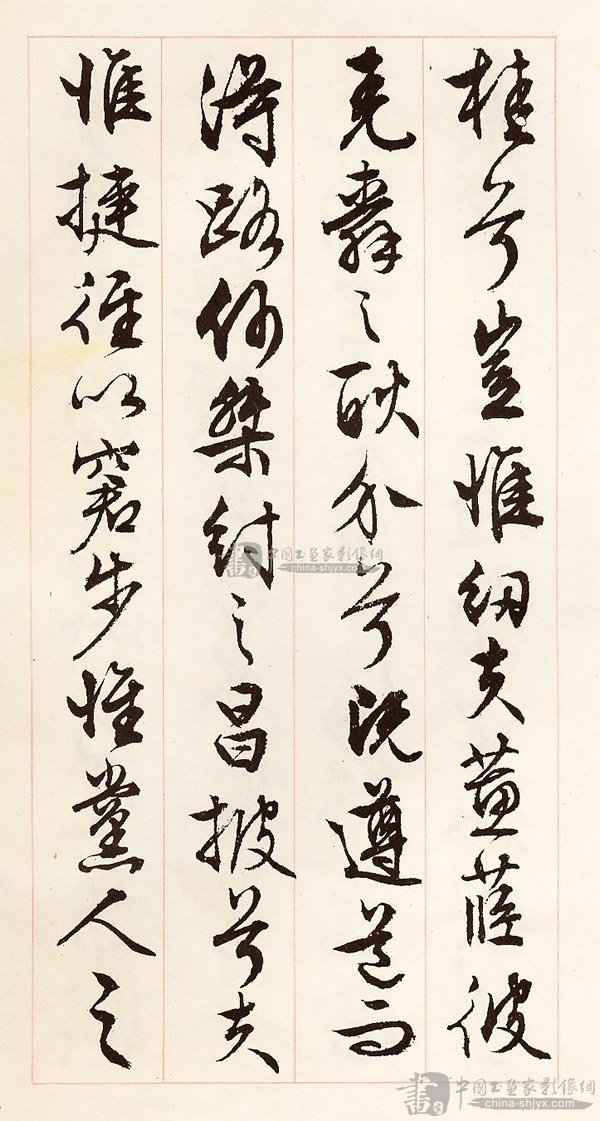 桂兮豈惟紉夫蕙茝彼
堯舜之耿介兮既遵道而
得路何桀紂之昌披兮夫
惟捷徑以窘步惟黨人之
書 中国书画家影像網
china-shjyx.com
書 中国书画家影像網
china-shjyx.com